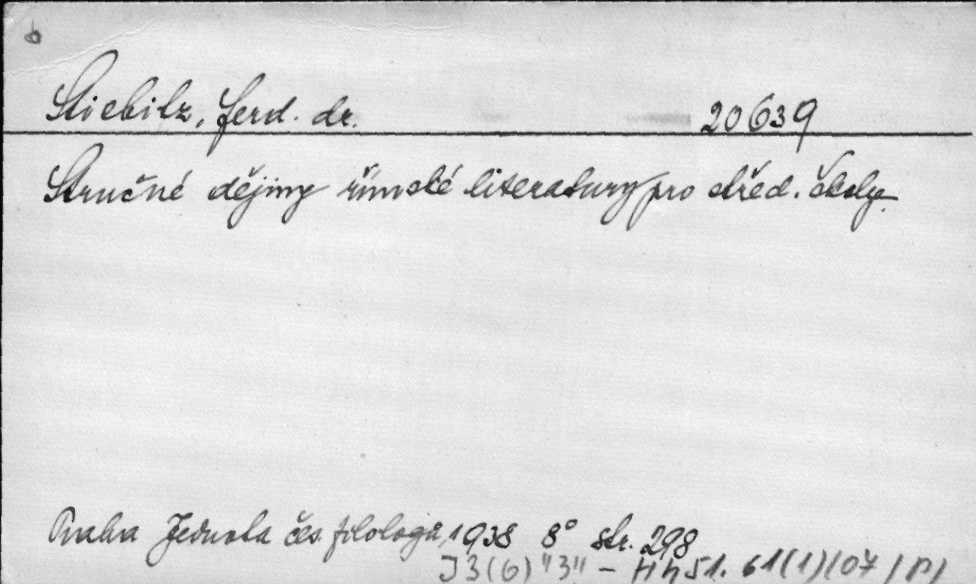 Stiebitz, Ferd. dr. 20639
Stručné dějiny římské literatury pro střed. školy.
Praha Jednota čes. filologů, 1938 8° str. 298